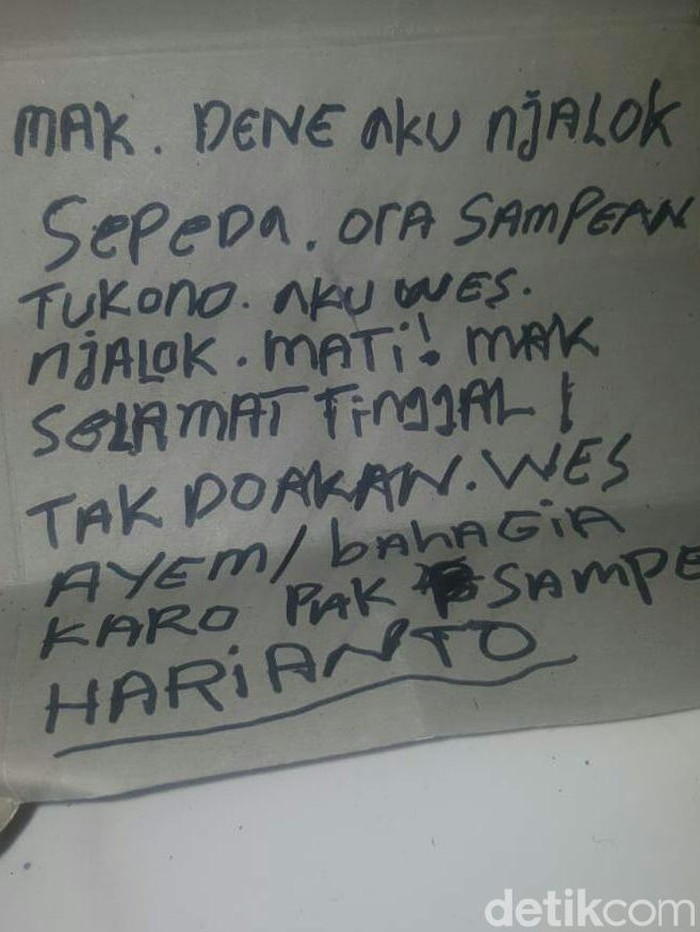 MAK. DENE AKU NJALOK
SEPEDA. ORA SAMPEAN
TUKONO. AKU WES.
NJALOK. MATI! MAK
SELAMAT TINGGAL!
TAK DOAKAN. WES
AYEM/bahaGiA
KARO PAK SAMPE
HARIANTO
detikcom